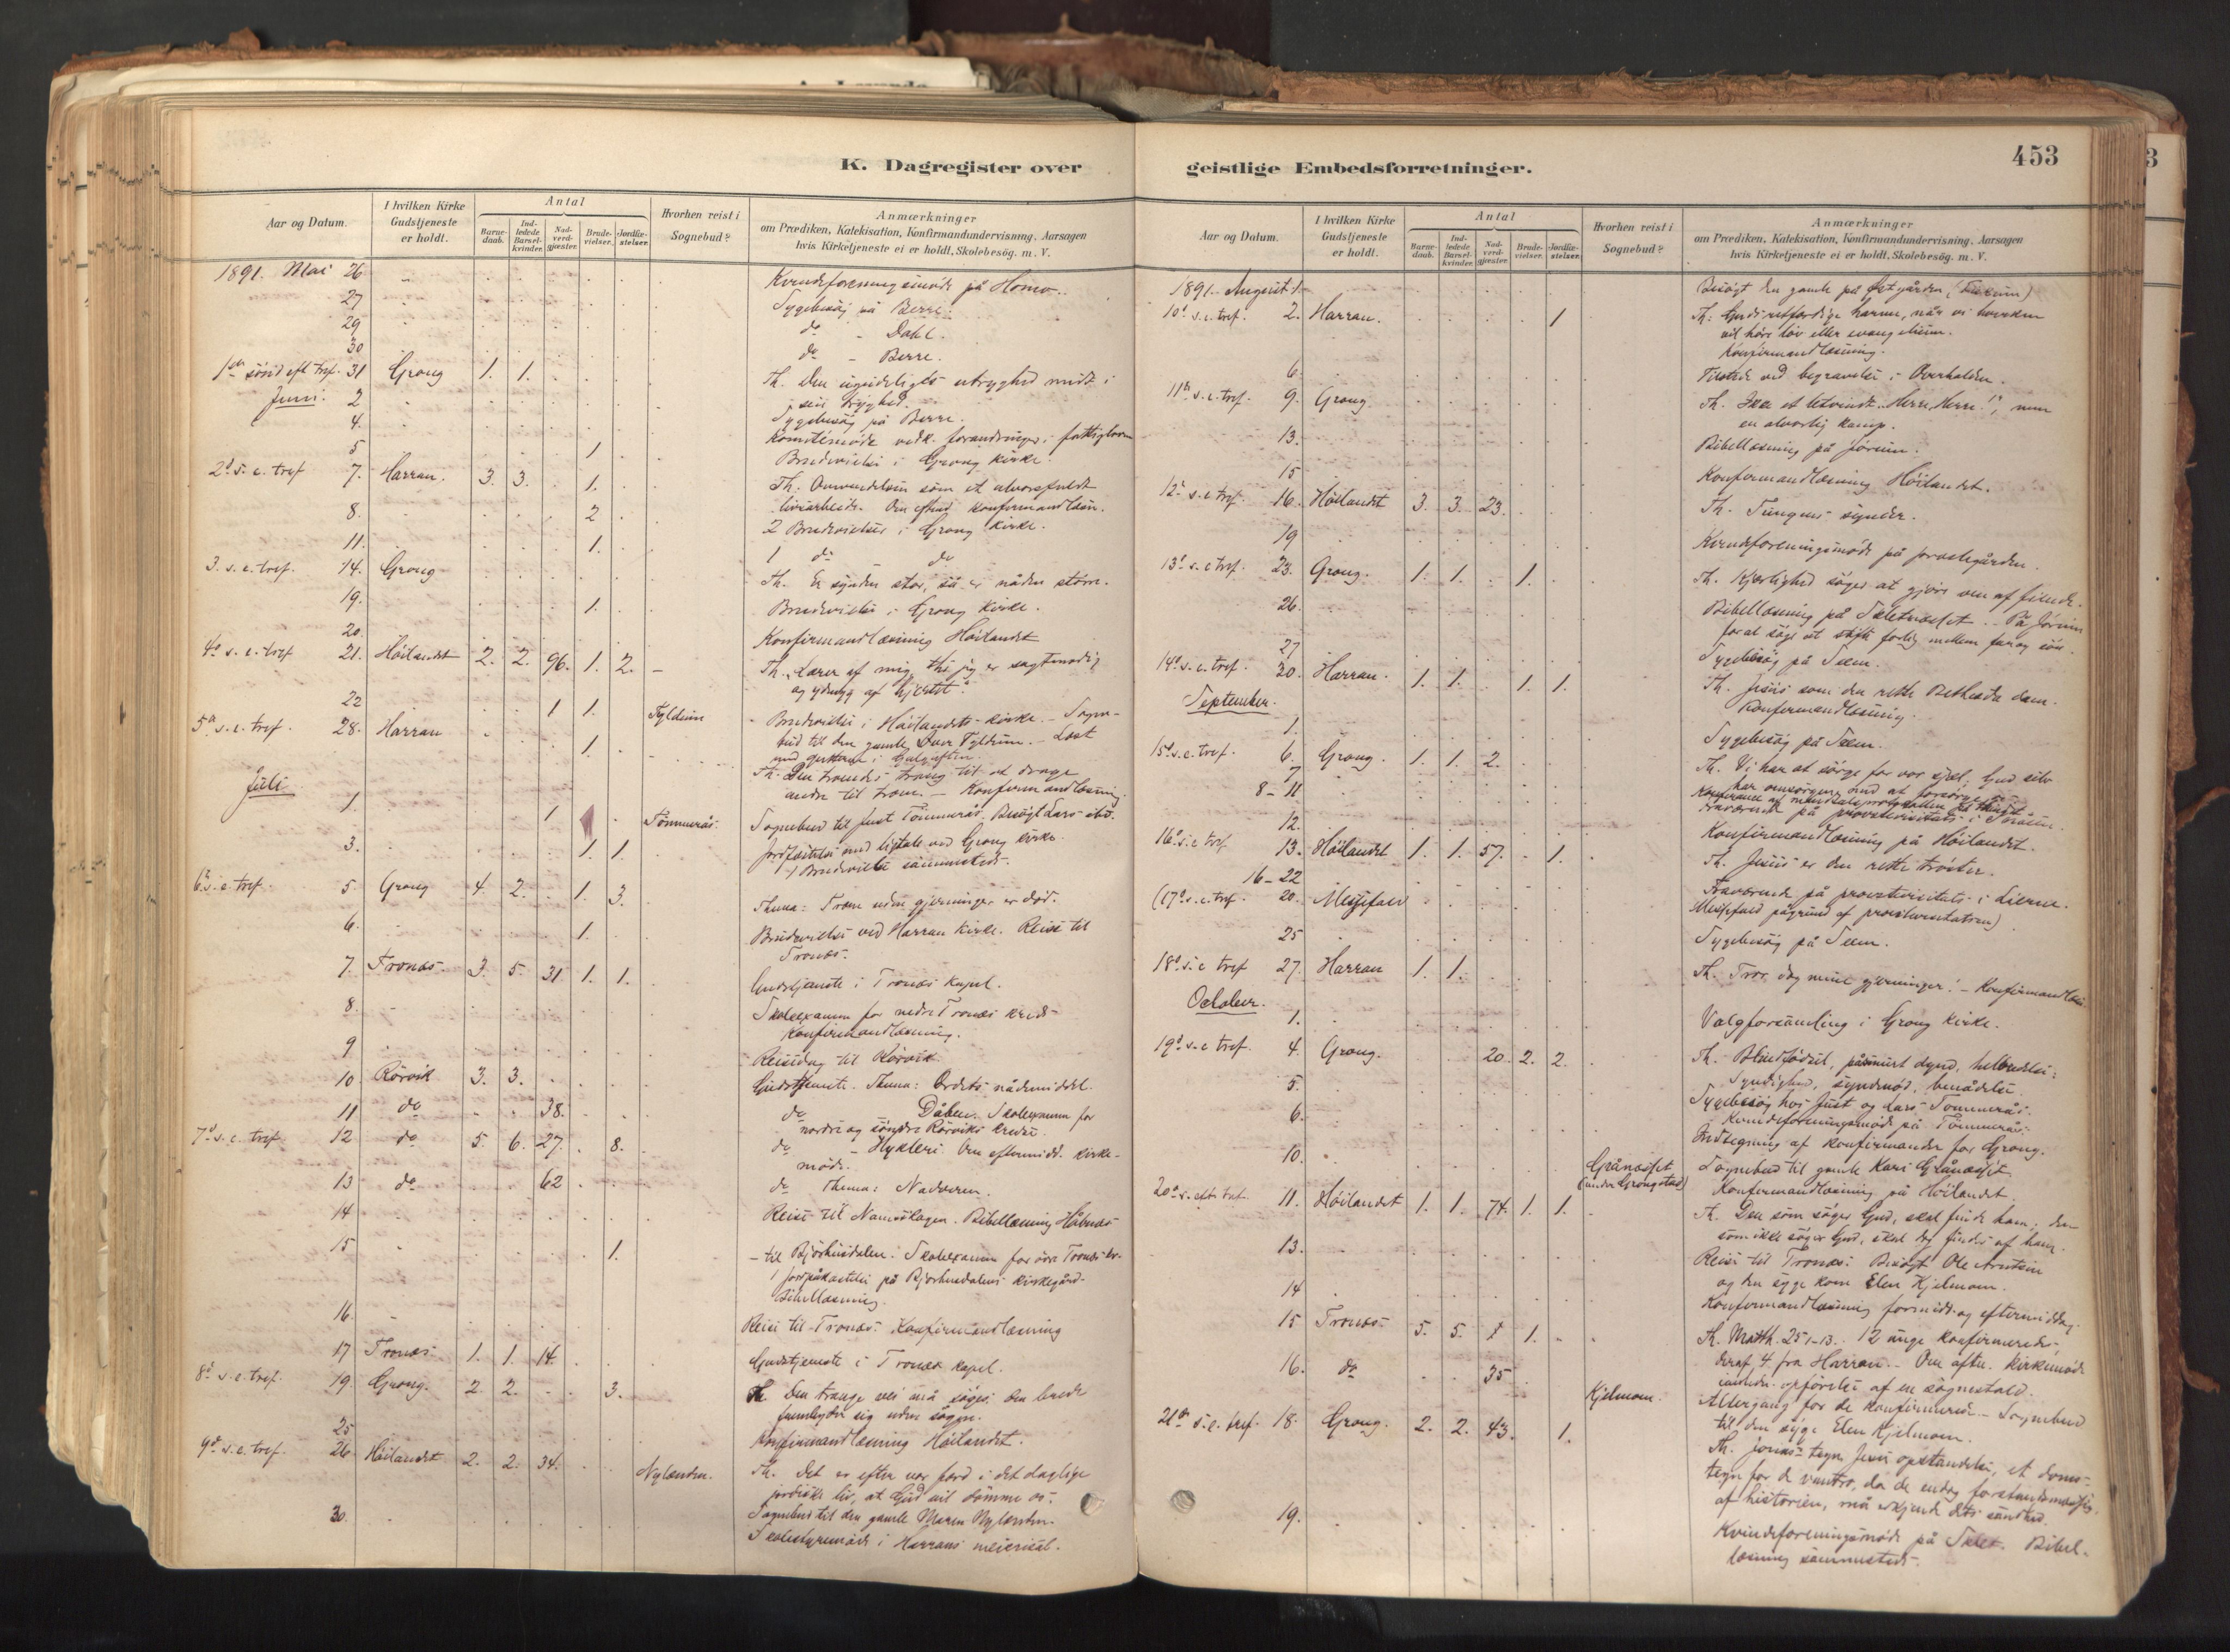 K. Dagregister over
Aar og Datum.
I hvilken Kirke Gudstjeneste er holdt.
Antal
Barne-daab.
Ind-ledede Barsel-kvinder.
Nad-verd-gjæster.
Brude-vielser.
Jordfæ-stelser.
Hvorhen reist i Sognebud?
Anmærkninger
om Prædiken, Katekisation, Konfirmandundervisning. Aarsagen
hvis Kirketjeneste ei er holdt. Skolebesög. m. V.
1891. Mai 26 Kvindeforeningsmöde på Homo.
27 Sygebesög på Berre.
29 do - Dahl.
30 do - Berre.
1ste sönd eft tref. 31 Grong 1. 1. Th. Den ugudeliges utryghed midt i
sin tryghed.
Juni. 2 Sygebesög på Berre.
4. Komitémöde vedk. forandringer i fattigloven
5 1 Brudevielse i Grong kirke.
2d s. e. tref 7. Harran. 3. 3. 1. Th. Omvendelsen som et alvorsfuldt
livsarbeide. Om efterm. konfirmandläsn.
8. 2 2 Brudevielser i Grong kirke.
11. 1. 1 do do
3. s. e. tref. 14. Grong Th. Er synden stor, så er nåden större.
19. 1. Brudevielse i Grong kirke.
20. Konfirmandläsning Höilandet
4d s. e. tref 21. Höilandet 2. 2. 96. 1. 2. Th. "Lærer af mig, thi jeg er sagtmodig
og ydmyg af hjertet".
22 1 1. Fyldum Brudevielse i Höilandets kirke. - Sogne-
bud til den gamle Fyldum.
5te s. e. tref. 28. Harran 1. Th. Den troendes trang til at drage
andre til troen. - Konfirmandläsning.
Juli 1. 1 Tömmerås. Sognebud til Just Tömmerås. Besögt Lars ibid.
3. 1. 1. Jordfästelse med ligtale ved Grong kirke.
1 Brudevielse sammesteds.
6te s. e. tref. 5. Grong 4. 2. 1. 3. Thema: Troen uden gjerninger er död.
6. 1. Brudevielse ved Harran kirke. Reise til
Tronæs.
7. Tronæs. 3. 5. 31. 1. 1. Gudstjeneste i Tronæs kapel.
8. Skoleexamen for nedre Tronæs kreds.
Konfirmandläsning.
9 Reisedag til Rörvik
10 Rörvik 3. 3. Gudstjeneste. Thema: Ordets nådemiddel.
11 do 38. do Dåben. Skoleexamen for
nordre og söndre Rörviks kredse.
7d s. e. tref 12 do 5. 6. 27. 8. do - Hykleri. Om eftermidd. kirke-
möde.
13 do 62 do Thema: Nadveren.
14 Reise til Namsskogan. Bibelläsning
15 1. - til Björhusdalen. Skoleexamen for övre Tronæs kr.
1 jordpåkastelse på Björhusdalens kirkegård.
Bibelläsning.
16. Reise til Tronæs. Konfirmandläsning
17 Tronæs 1. 1. 14. Gudstjeneste i Tronæs kapel.
8d s. e. tref. 19. Grong. 2. 2. 3. Th. Den trange vei må söges; den brede
frembyder sig uden sögen.
25 Konfirmandläsning Höilandet.
9d s. e. tref. 26. Höilandet 2. 2. 34. Nylanden. Th. Det er efter vor færd i det daglige
jordiske liv, at Gud vil dömme os.
Sognebud til den gamle Maren Nylanden.
30. Skolestyremöde i Harrans meierisal.
453
geistlige Embedsforretninger.
Aar og Datum.
I hvilken Kirke Gudstjeneste er holdt.
Antal
Barne-daab.
Ind-ledede Barsel-kvinder.
Nad-verd-gjæster.
Brude-vielser.
Jordfæ-stelser.
Hvorhen reist i Sognebud?
Anmærkninger
om Prædiken, Katekisation, Konfirmandundervisning. Aarsagen
hvis Kirketjeneste ei er holdt. Skolebesög. m. V.
1891. August 1. Besögt den gamle på
10d s. e. tref. 2. Harran. 1 Th. Guds retfærdige harme, når vi hverken
vil höre lov eller evangelium.
Konfirmandläsning.
6. Tilstede ved begravelse i Overhalden.
11te s. e. tref. 9. Grong Th. Ikke et letvindt "Herre, Herre!", men
en alvorlig kamp.
13. Bibelläsning på Jörum.
15 Konfirmandläsning Höilandet.
12d s. e. tref. 16. Höilandet 3. 3. 23. Th. Tungens synder.
19 Kvindeforeningsmöde på præstegården.
13d s. e. tref. 23. Grong. 1. 1. 1. Th. Kjærlighed söger at gjöre ven af fiende.
26. Bibelläsning på På Jörum
for at söge at stifte forlig mellem far og sön.
27 Sygebesög på Seem.
14d s. e. tref. 30. Harran. 1. 1. 1. 1. Th. Jesus som den rette Bethesda dam.
Konfirmandläsning.
September.
1. Sygebesög på Seem.
15d s. e. tref. 6. Grong. 1. 1. 2. Th. Vi har at sörge for vor sjæl; Gud selv
har omsorgen med at forsörge
7
8-11 Fraværende på provstevisitats i Snåsen.
12. Konfirmandläsning på Höilandet.
16d s. e. tref. 13. Höilandet 1. 1. 57. 1. Th. Jesus er den rette tröster.
16-22 Fraværende på provstevisitats i Lierne.
(17d s. e. tref. 20. Messefald Messefald på grund af provstevisitatsen)
25 Sygebesög på Seem.
18d s. e. tref 27. Harran 1. 1. Th. Tro dog mine gjerninger! - Konfirmandläsn.
October.
1. Valgforsamling i Grong kirke.
19d s. e. tref 4. Grong. 20. 2. 2. Th. Blindfödsel, påsmurt dynd, helbredelse:
Syndighed, syndenöd, benådelse
5. Sygebesög hos Just og Lars Tömmerås.
6. Kvindeforeningsmöde på Tömmerås.
Indtegning af konfirmander for Grong.
10. Grånæsset (under Grongstad) Sognebud til gamle Kari Grånæsset.
Konfirmandläsning på Höilandet.
20d s. eft. tref. 11. Höilandet 1. 1. 74. 1. 1. Th. Den som söger Gud, skal finde ham; den
som ikke söger Gud, skal dog findes af ham.
13. Reise til Tronæs. Besögt Ole
og den syge kone Elen Kjelmoen.
14 Konfirmandläsning formidd. og eftermiddag.
15 Tronæs 5. 5. 1. Th. Matth. 25 1-13. 12 unge konfirmerede
deraf 4 fra Harran. - Om aften. kirkemöde
opförelse af en sognestald.
16. do 35 Kjelmoen. Altergang for de konfirmerede. - Sognebud
til den syge Elen Kjelmoen.
21de s. e. tref. 18. Grong. 2. 2. 43. 1. Th. Jonas' tegn, Jesu opstandelse, et doms-
tegn for de vantro, da de endog forstandsmæssig,
af historien, må erkjende dets sandhed.
19. Kvindeforeningsmöde på Bibel-
läsning sammesteds.